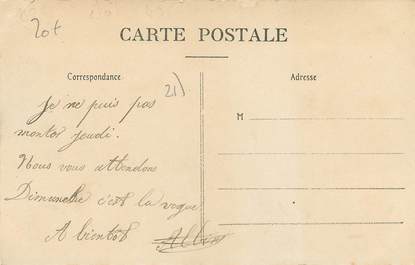 20f
CARTE POSTALE
Correspondance
Adresse
21)
M
Je ne puis pas
monter jeudi.
Nous vous attendons
Dimanche c'est la vogue
A bientôt